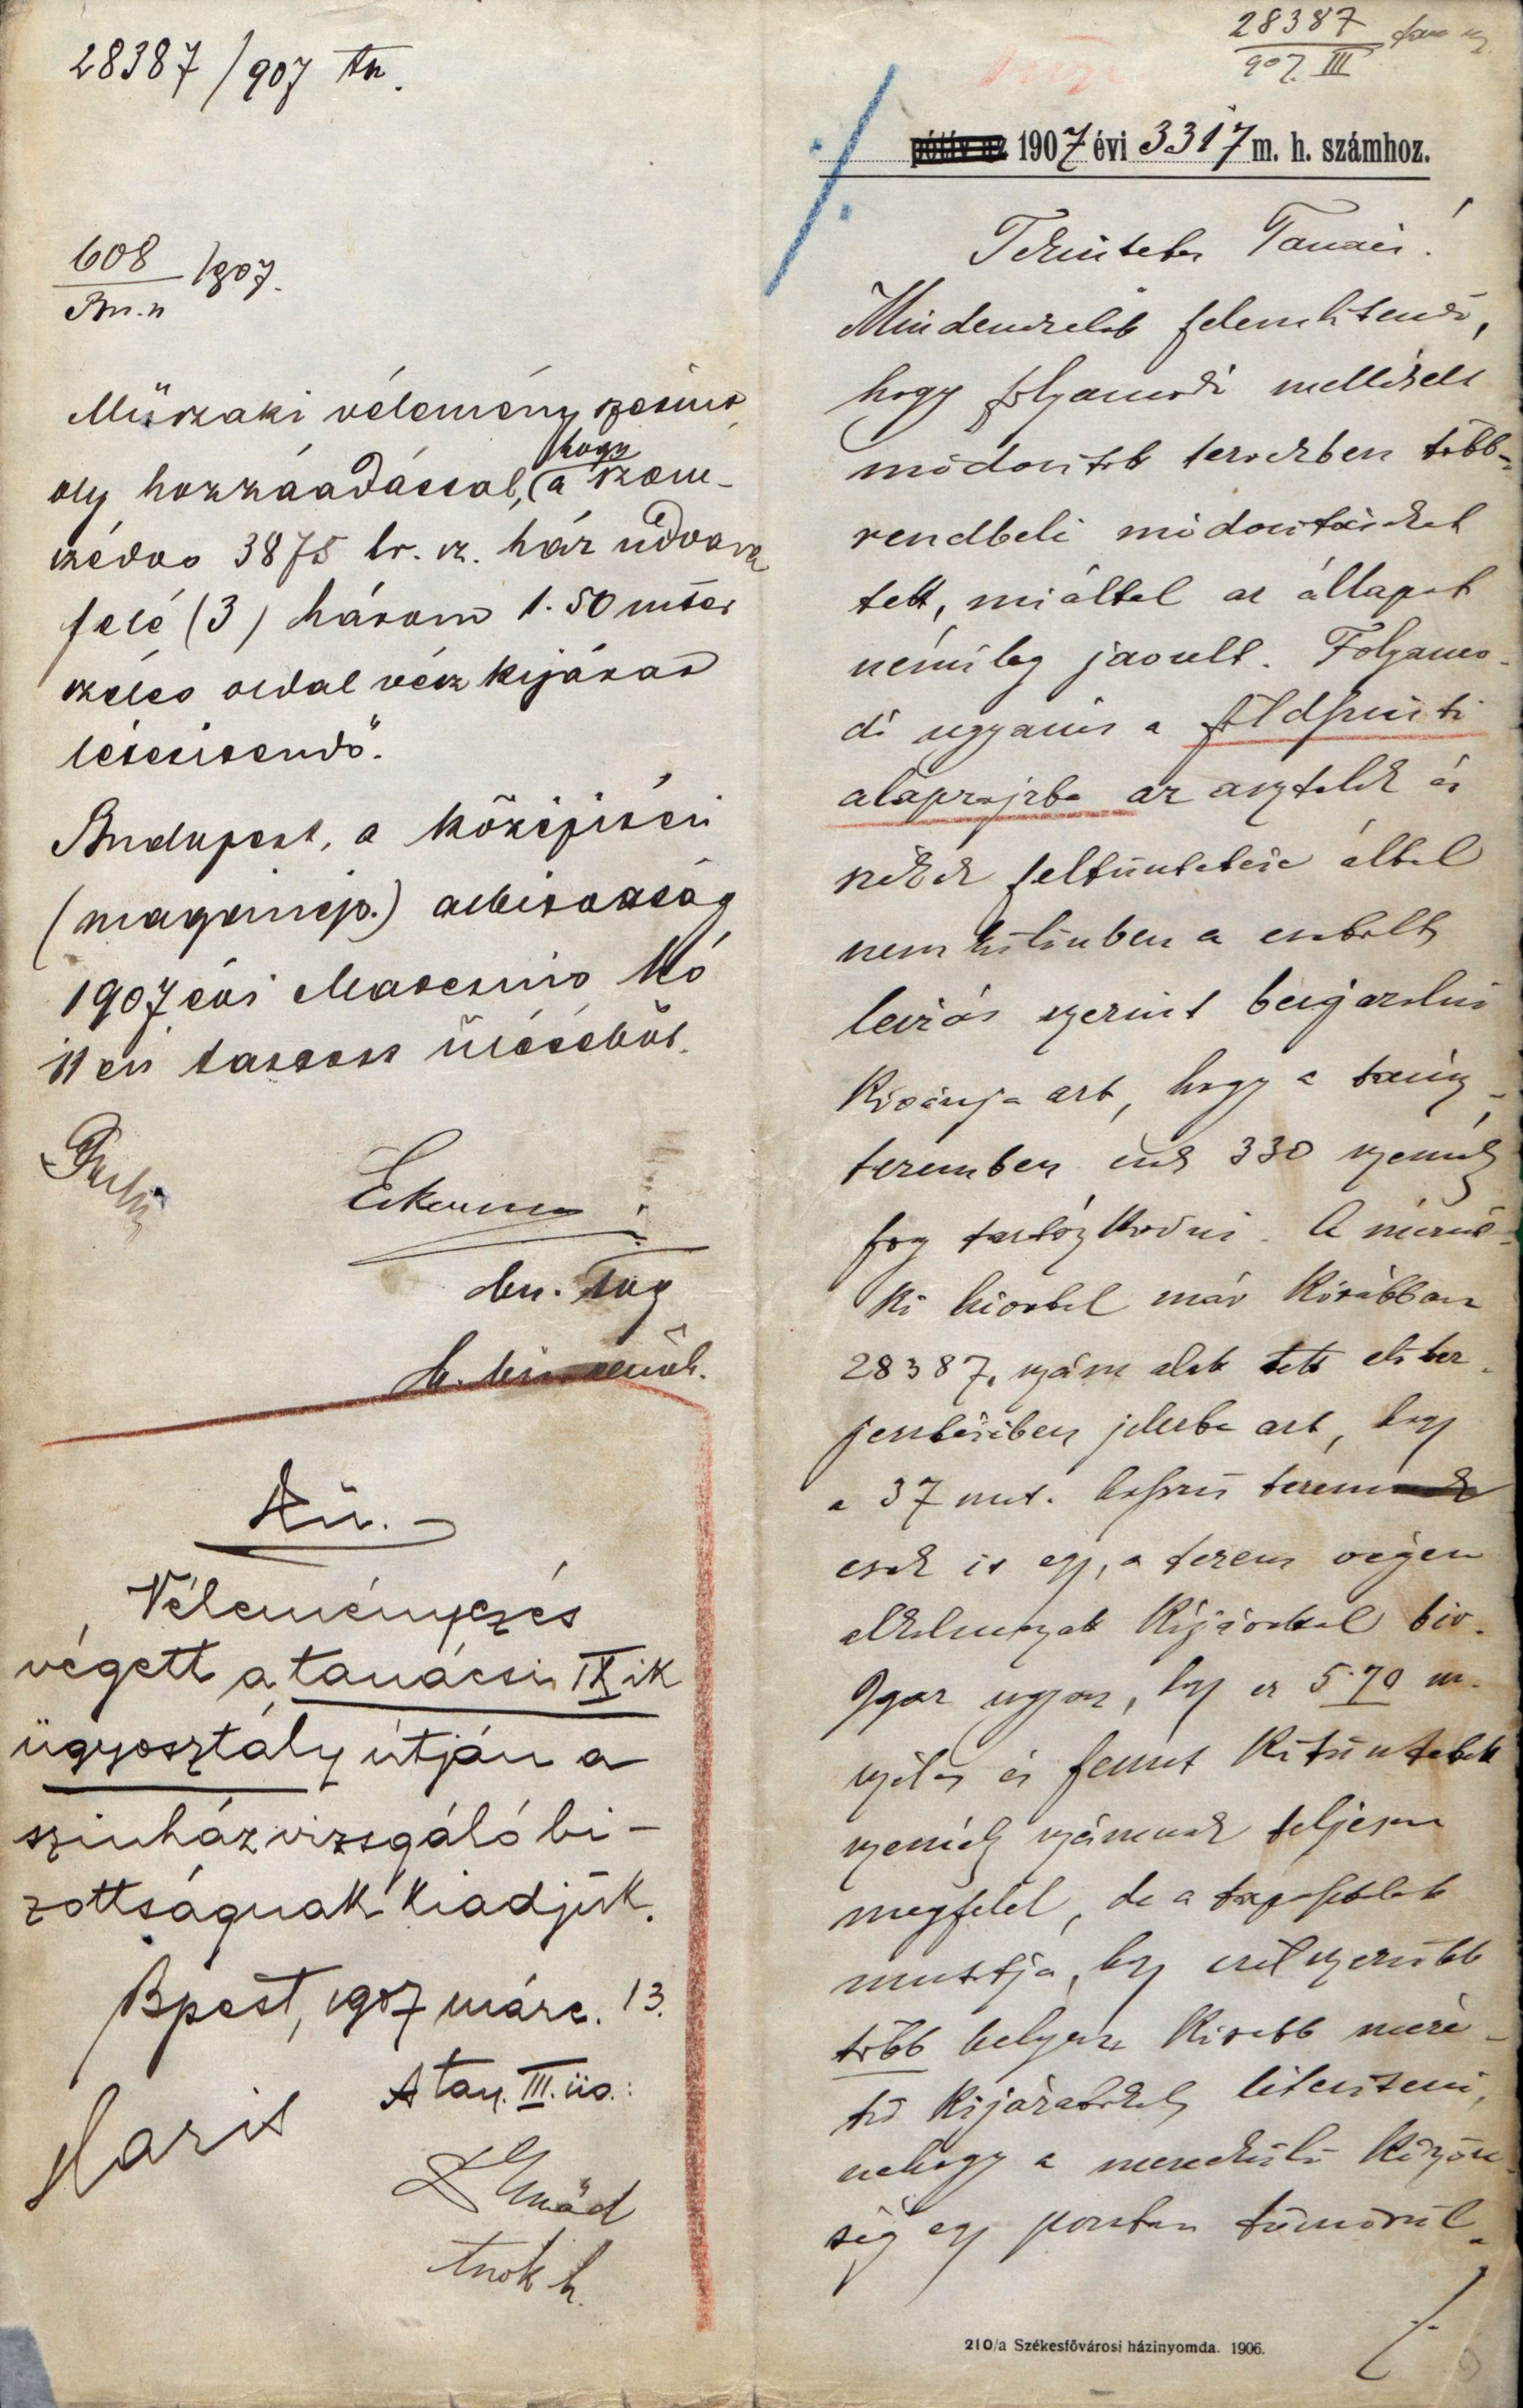 28387/907 tn.
608/Bm.n /907.
Műszaki vélemény szerint
oly hozzáadással, hogy a szom-
szédos 3875 hr. sz. ház udvara
felé (3) három 1.50 méter
széles oldal vész kijárat
létesítendő.
Budapest, a középítési
(magánép.) albizottság
1907 évi Márczius hó
11 én tartott üléséből.
Kü.-
Véleményezés
végett a tanácsi IX ik
ügyosztály útján a
szinházvizsgáló bi-
zottságnak kiadjuk.
Bpest, 1907 márc. 13.
A tan. III. üo.:
tnok h.
28387
907. III
pótív az 1907 évi 3317 m. h. számhoz.
Tekintetes Tanács!
Mindenekelőtt felemlítendő,
hogy folyamodó mellékelt
módosított tervekben több-
rendbeli módosításokat
tett, miáltal az állapot
némileg javult. Folyamo-
dó ugyanis a földszinti
alaprajzba az asztalok és
székek feltüntetése által
nemkülönben a csatolt
leirás szerint beigazolni
kívánja azt, hogy a táncz-
teremben csak 330 személy
fog tartózkodni. A mérnö-
ki hivatal már korábban
28387. szám alatt tett előter-
jesztésében jelezte azt, hogy
a 37 mt. hosszú terem
csak is egy, a terem végén
alkalmazott kijárattal bir.
Igaz ugyan, hogy ez 5.70 m.
széles és fennt kitüntetett
személy számnak teljesen
megfelel, de a tapasztalat
mutatja, hogy czélszerűbb
több helyen kisebb mére-
tű kijáratokat létesíteni,
nehogy a menekülő közön-
ség egy pontban tömörül-
./.
210/a Székesfővárosi házinyomda. 1906.